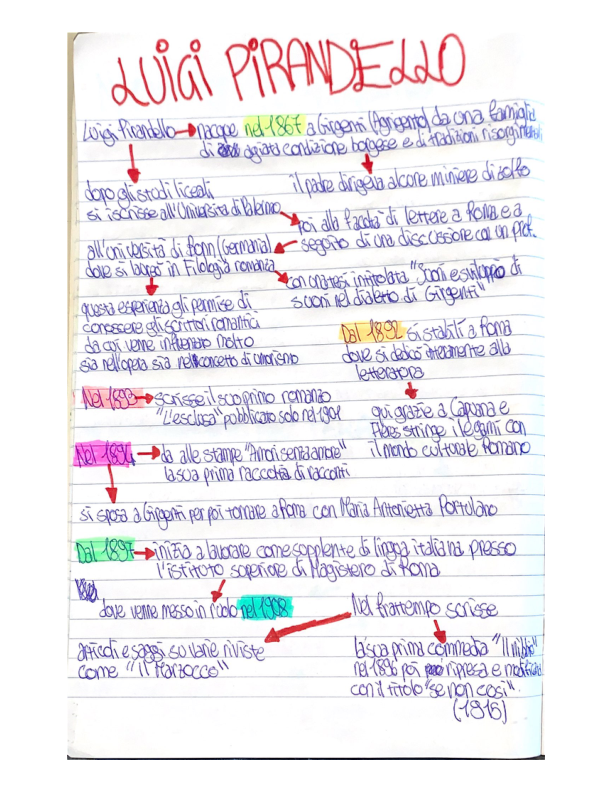 LUIGI PIRANDELLO
Luigi Pirandello → nacque nel 1867 a Girgenti (Agrigento) da una famiglia
di agiata condizione borgese e di tradizioni risorgimentali
dopo gli studi liceali
si iscrisse all'Università di Palermo
il padre dirigeva alcune miniere di zolfo
poi alla facoltà di lettere a Roma e a
seguito di una discussione con un prof.
all'università di Bonn (Germania)
dove si laureò in Filologia romanza
con una tesi intitolata "Suoni e sviluppo di
suoni nel dialetto di Girgenti"
questa esperienza gli permise di
conoscere gli scrittori romantici
da cui venne influenzato molto
sia nell'opera sia nel concetto di umorismo
Dal 1892 si stabilì a Roma
dove si dedicò interamente alla
letteratura
qui grazie a Capuana e
stringe i legami con
il mondo culturale Romano
Nel 1893 → scrisse il suo primo romanzo
"L'esclusa" pubblicato solo nel 1901
Nel 1894 → da alle stampe "Amori senza amore"
la sua prima raccolta di racconti
si sposa a Girgenti per poi tornare a Roma con Maria Antonietta Portulano
Dal 1897 → inizia a lavorare come supplente di lingua italiana presso
l'istituto superiore di Magistero di Roma
dove venne messo in ruolo nel 1908
Nel frattempo scrisse
articoli e saggi su varie riviste
come "il Marzocco"
la sua prima commedia "Il nibbio"
nel 1896 poi ripresa e modificata
con il titolo "se non così".
(1915)